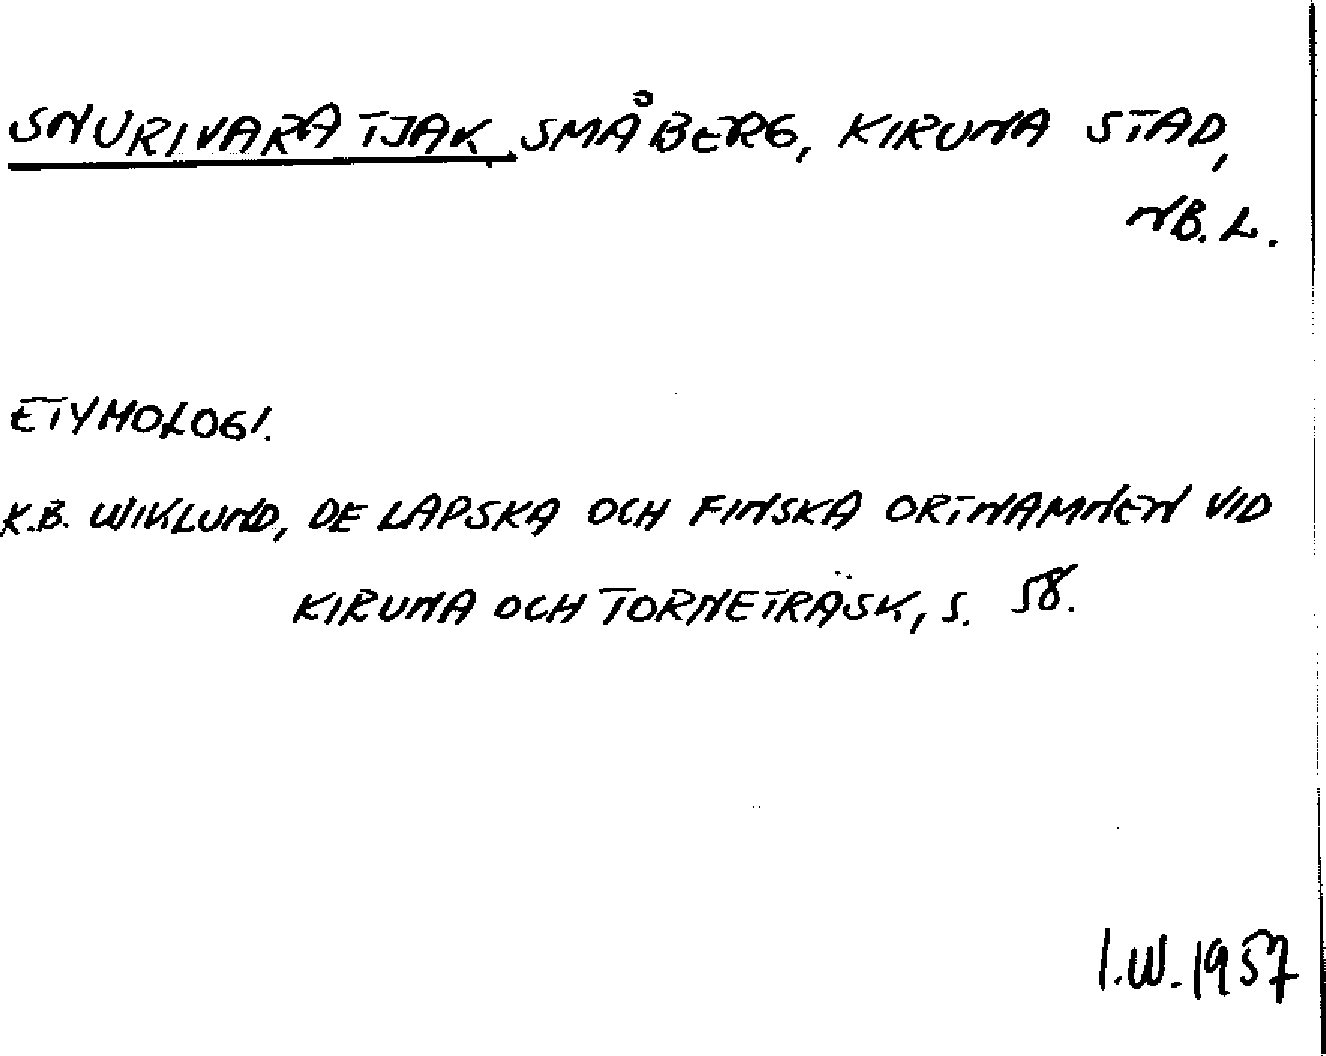 SNURIVARATJAK, SMÅBERG, KIRUNA STAD,
NB.L.
ETYMOLOGI.
K.B. WIKLUND, DE LAPSKA OCH FINSKA ORTNAMNEN VID
KIRUNA OCH TORNETRÄSK, S. 58.
I.W. 1957